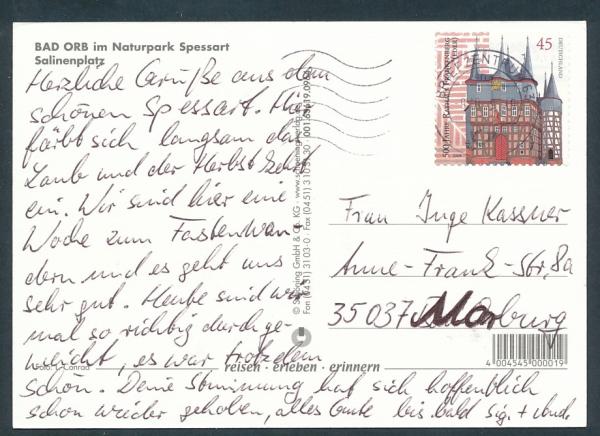 BAD ORB im Naturpark Spessart
Salinenplatz
Herzliche Grüße aus dem
schönen Spessart. Hier
färbt sich langsam das
Laub und der Herbst zieht
ein. Wir sind hier eine
Woche zum Fastenwan
dern und es geht uns
sehr gut. Heute sind wir
mal so richtig durchge-
weicht, es war trotzdem
schön. Deine Stimmung hat sich hoffentlich
schon wieder gehoben, alles Gute bis bald
© Schöning GmbH & Co. KG
Fon (0451) 3103-0 Fax (0451) 3103
reisen · erleben · erinnern
500 Jahre Rathaus Frankenberg (Eder)
45
DEUTSCHLAND
BRIEFZENTRUM
Frau Inge Kassner
Anne-Frank-Str. 8a
35037 Marburg
4 004545 000019